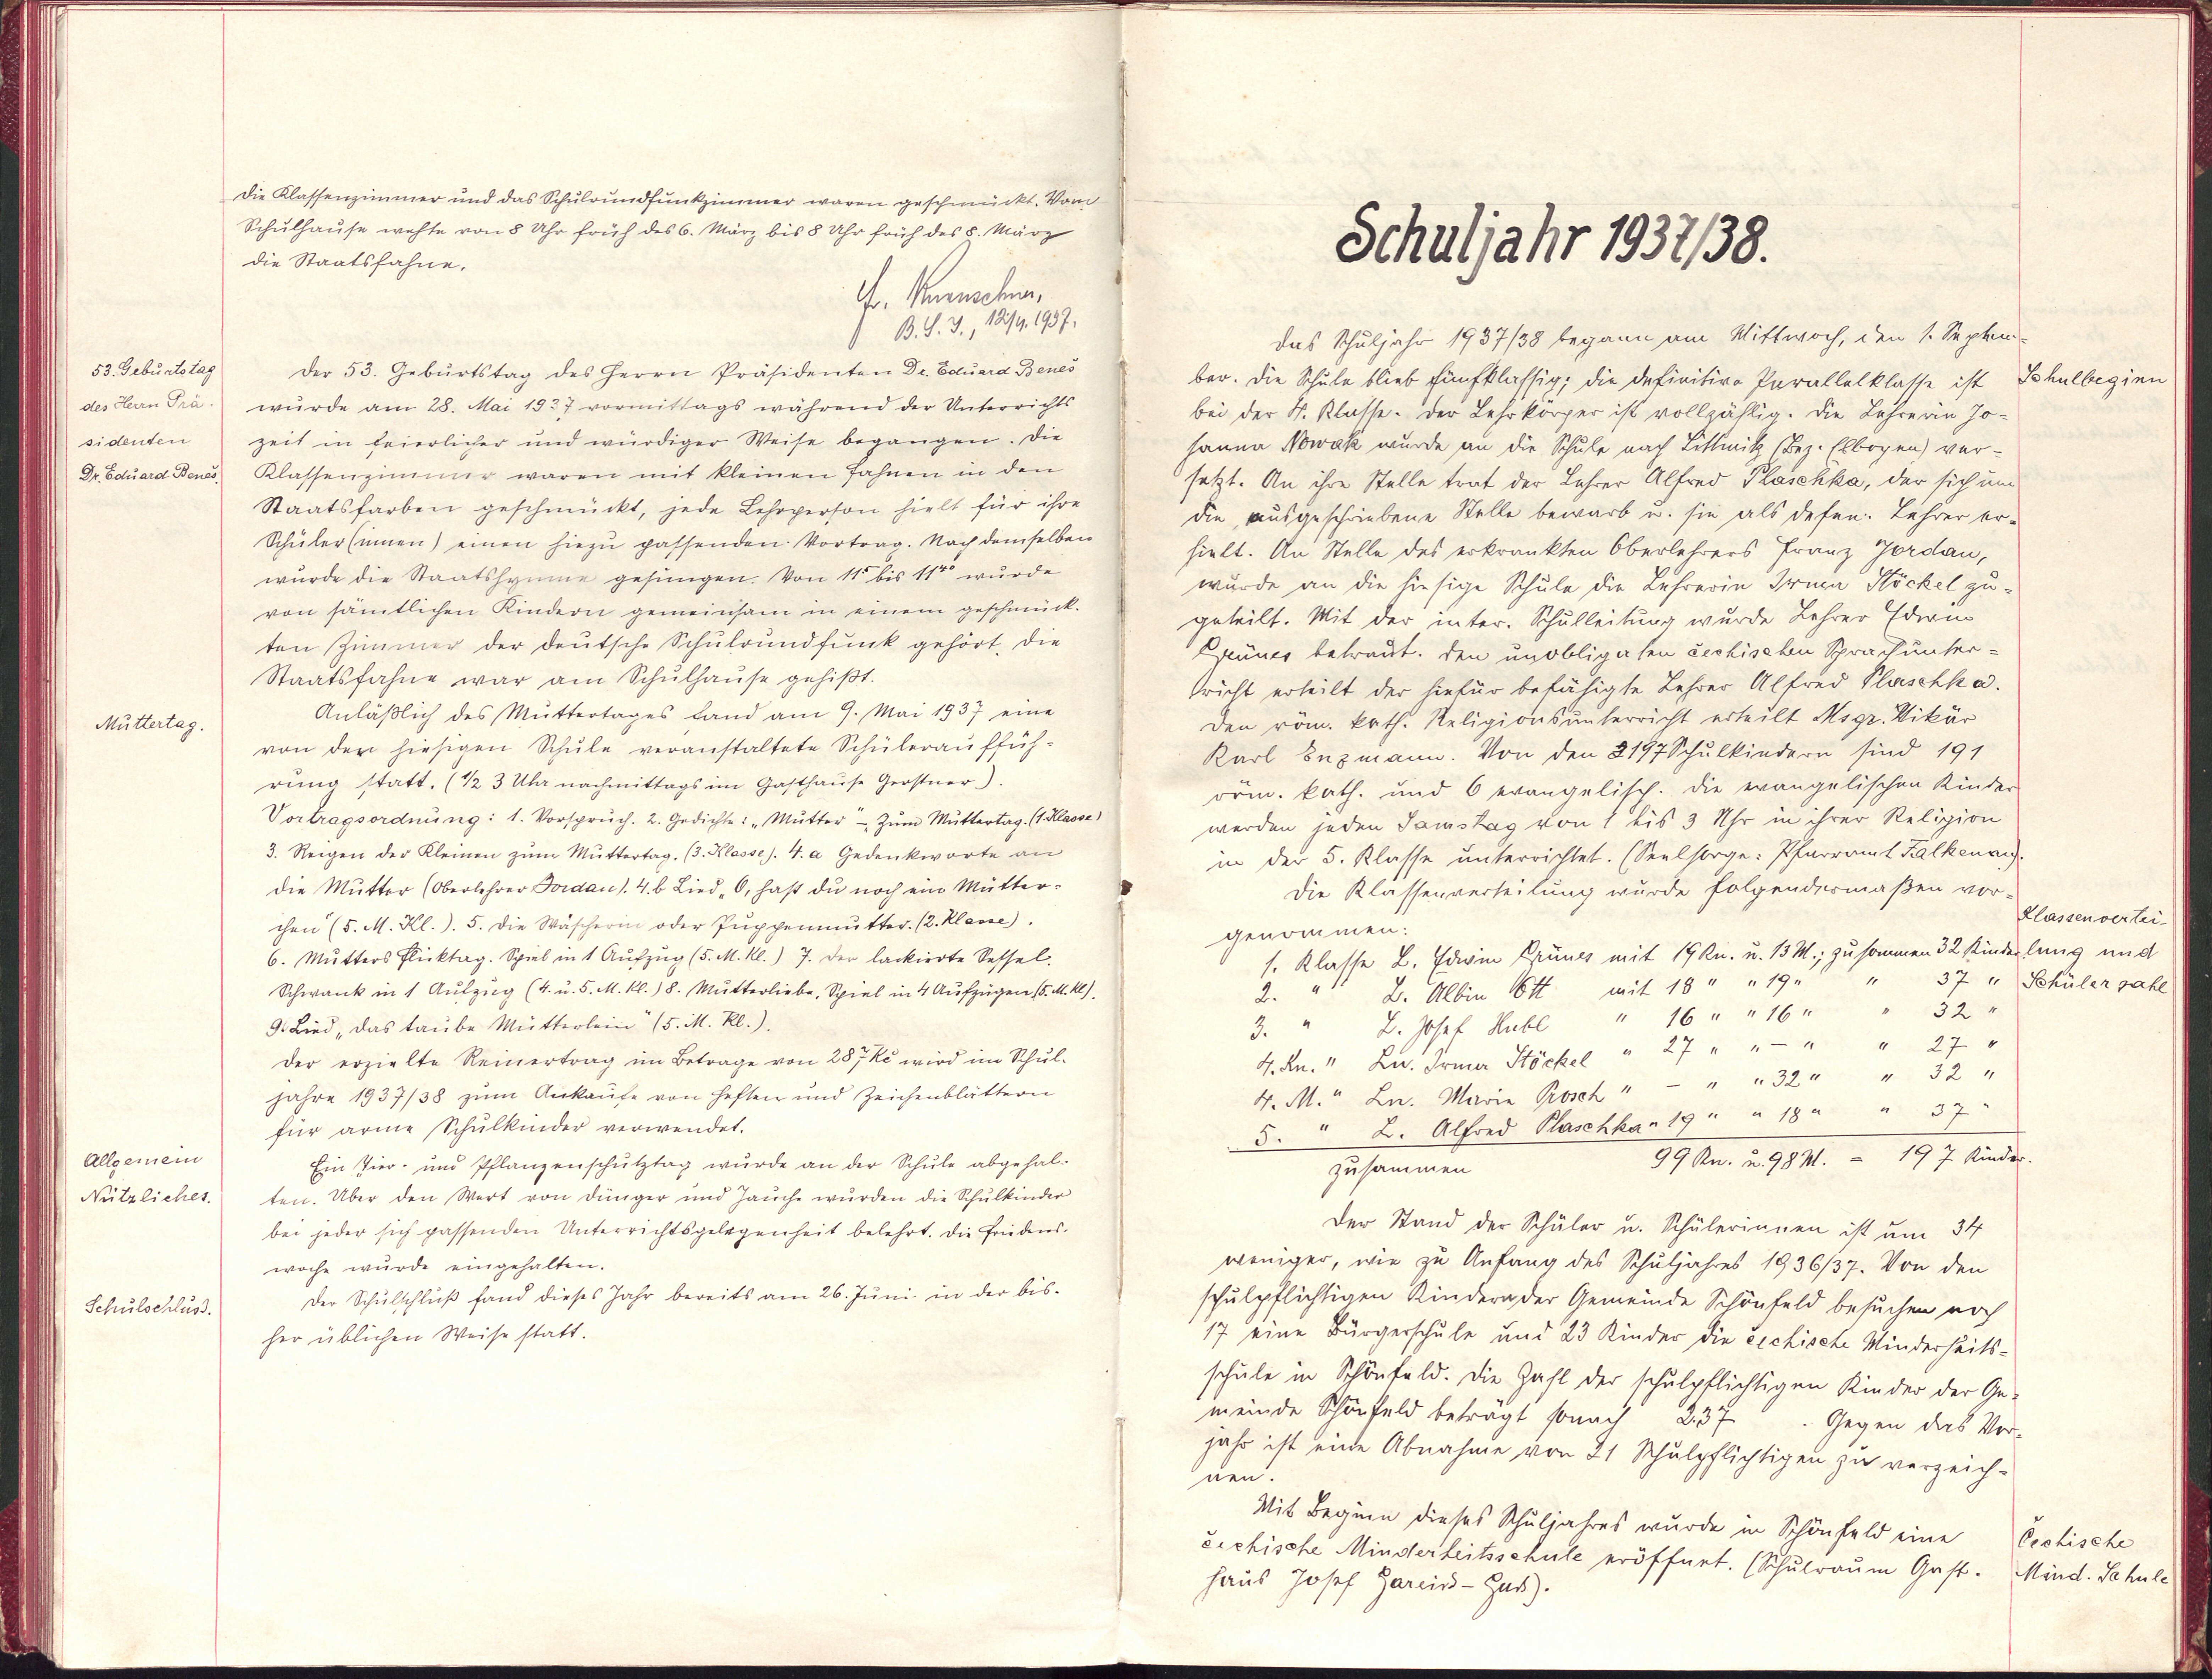 Die Klassenzimmer und das Schulrundfunkzimmer waren geschmückt. Vom
Schulhause wehte von 8 Uhr früh des 6. März bis 8 Uhr früh des 8. März
die Staatsfahne.
B.S.I., 12/4. 1937.
53. Geburtstag
des Herrn Prä-
sidenten
Dr. Eduard Beneš.
Der 53. Geburtstag des Herrn Präsidenten Dr. Eduard Beneš
wurde am 28. Mai 1937 vormittags während der Unterrichts
zeit in feierlicher und würdiger Weise begangen. Die
Klassenzimmer waren mit kleinen Fahnen in den
Staatsfarben geschmückt, jede Lehrperson hielt für ihre
Schüler(innen) einen hiezu passenden Vortrag. Nach demselben
wurde die Staatshymne gesungen. Von 11⁵ bis 11⁴⁰ wurde
von sämtlichen Kindern gemeinsam in einem geschmück-
ten Zimmer der deutsche Schulrundfunk gehört. Die
Staatsfahne war am Schulhause gehißt.
Muttertag.
Anläßlich des Muttertages fand am 9. Mai 1937 eine
von der hiesigen Schule veranstaltete Schülerauffüh-
rung statt. (½ 3 Uhr nachmittags im Gasthause Gerstner).
Vortragsordnung: 1. Vorspruch. 2. Gedichte: „Mutter" – „Zum Muttertag. (1. Klasse)
3. Reigen der Kleinen zum Muttertag. (3. Klasse). 4. a Gedenkworte an
die Mutter (Oberlehrer Jordan). 4. b Lied „O, hast du noch ein Mütter-
chen" (5. M. Kl.). 5. Die Wäscherin oder Puppenmutter. (2. Klasse).
6. Mutters Flicktag. Spiel in 1 Aufzug (5. M. Kl.) 7. Der lackierte Sessel.
Schwank in 1 Aufzug (4. u. 5. M. Kl.) 8. Mutterliebe. Spiel in 4 Aufzügen (5. M. Kl).
9. Lied „Das taube Mütterlein" (5. M. Kl.).
Der erzielte Reinertrag im Betrage von 287 Kč wird im Schul-
jahre 1937/38 zum Ankaufe von Heften und Zeichenblättern
für arme Schulkinder verwendet.
Allgemein
Nützliches.
Ein Tier- und Pflanzenschutztag wurde an der Schule abgehal-
ten. Über den Wert von Dünger und Jauche wurden die Schulkinder
bei jeder sich passenden Unterrichtsgelegenheit belehrt. Die Friedens-
woche wurde eingehalten.
Schulschluss.
Der Schulschluß fand dieses Jahr bereits am 26. Juni in der bis-
her üblichen Weise statt.
Schuljahr 1937/38.
Das Schuljahr 1937/38 begann am Mittwoch, den 1. Septem-
ber. Die Schule blieb fünfklassig; die definitive Parallelklasse ist
Schulbeginn
bei der 4. Klasse. Der Lehrkörper ist vollzählig. Die Lehrerin Jo-
hanna Nowak wurde an die Schule nach Littmitz (Bez. Elbogen) ver-
setzt. An ihre Stelle trat der Lehrer Alfred Plaschka, der sich um
die ausgeschriebene Stelle bewarb u. sie als defin. Lehrer er-
hielt. An Stelle des erkrankten Oberlehrers Franz Jordan,
wurde an die hiesige Schule die Lehrerin Irma Stöckel zu-
geteilt. Mit der inter. Schulleitung wurde Lehrer Edwin
Grünes betraut. Den unobligaten čechischen Sprachunter-
richt erteilt der hiefür befähigte Lehrer Alfred Plaschka.
Den röm. kath. Religionsunterricht erteilt Msgr. Vikär
Karl Enzmann. Von den 197 Schulkindern sind 191
röm. kath. und 6 evangelisch. Die evangelischen Kinder
werden jeden Samstag von 1 bis 3 Uhr in ihrer Religion
in der 5. Klasse unterrichtet. (Seelsorge: Pfarramt Falkenau).
Die Klassenverteilung wurde folgendermaßen vor-
genommen:
Klassenvertei-
lung und
Schülerzahl
1. Klasse L. Edwin Grünes mit 19 Kn. u. 13 M.; zusammen 32 Kinder
2. " L. Albin Ott mit 18 " " 19 " " 37 "
3. " L. Josef Hubl " 16 " " 16 " " 32 "
4. Kn. " Ln. Irma Stöckel " 27 " " – " " 27 "
4. M. " Ln. Marie Prosch " – " " 32 " " 32 "
5. " L. Alfred Plaschka " 19 " " 18 " " 37 "
zusammen 99 Kn. u. 98 M. = 197 Kinder.
Der Stand der Schüler u. Schülerinnen ist um 34
weniger, wie zu Anfang des Schuljahres 1936/37. Von den
schulpflichtigen Kindern der Gemeinde Schönfeld besuchen noch
17 eine Bürgerschule und 23 Kinder die čechische Minderheits-
schule in Schönfeld. Die Zahl der schulpflichtigen Kinder der Ge-
meinde Schönfeld beträgt sonach 237. Gegen das Vor-
jahr ist eine Abnahme von 21 Schulpflichtigen zu verzeich-
nen.
Mit Beginn dieses Schuljahres wurde in Schönfeld eine
čechische Minderheitsschule eröffnet. (Schulraum Gast-
haus Josef
Čechische
Mind. Schule